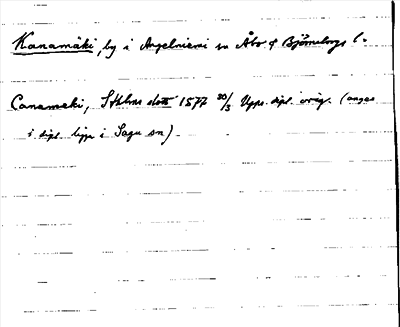 Kanamäki, by i Angelniemi sn Åbo o Björneborgs l.
Canameki, Sthlms slott 1577 30/3 Upps. dipl. orig. (anges
i dipl. ligga i Sagu sn)